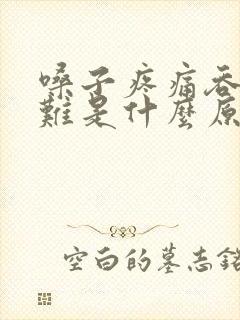 嗓子疼痛吞
難是什麼原
空白的墓志銘